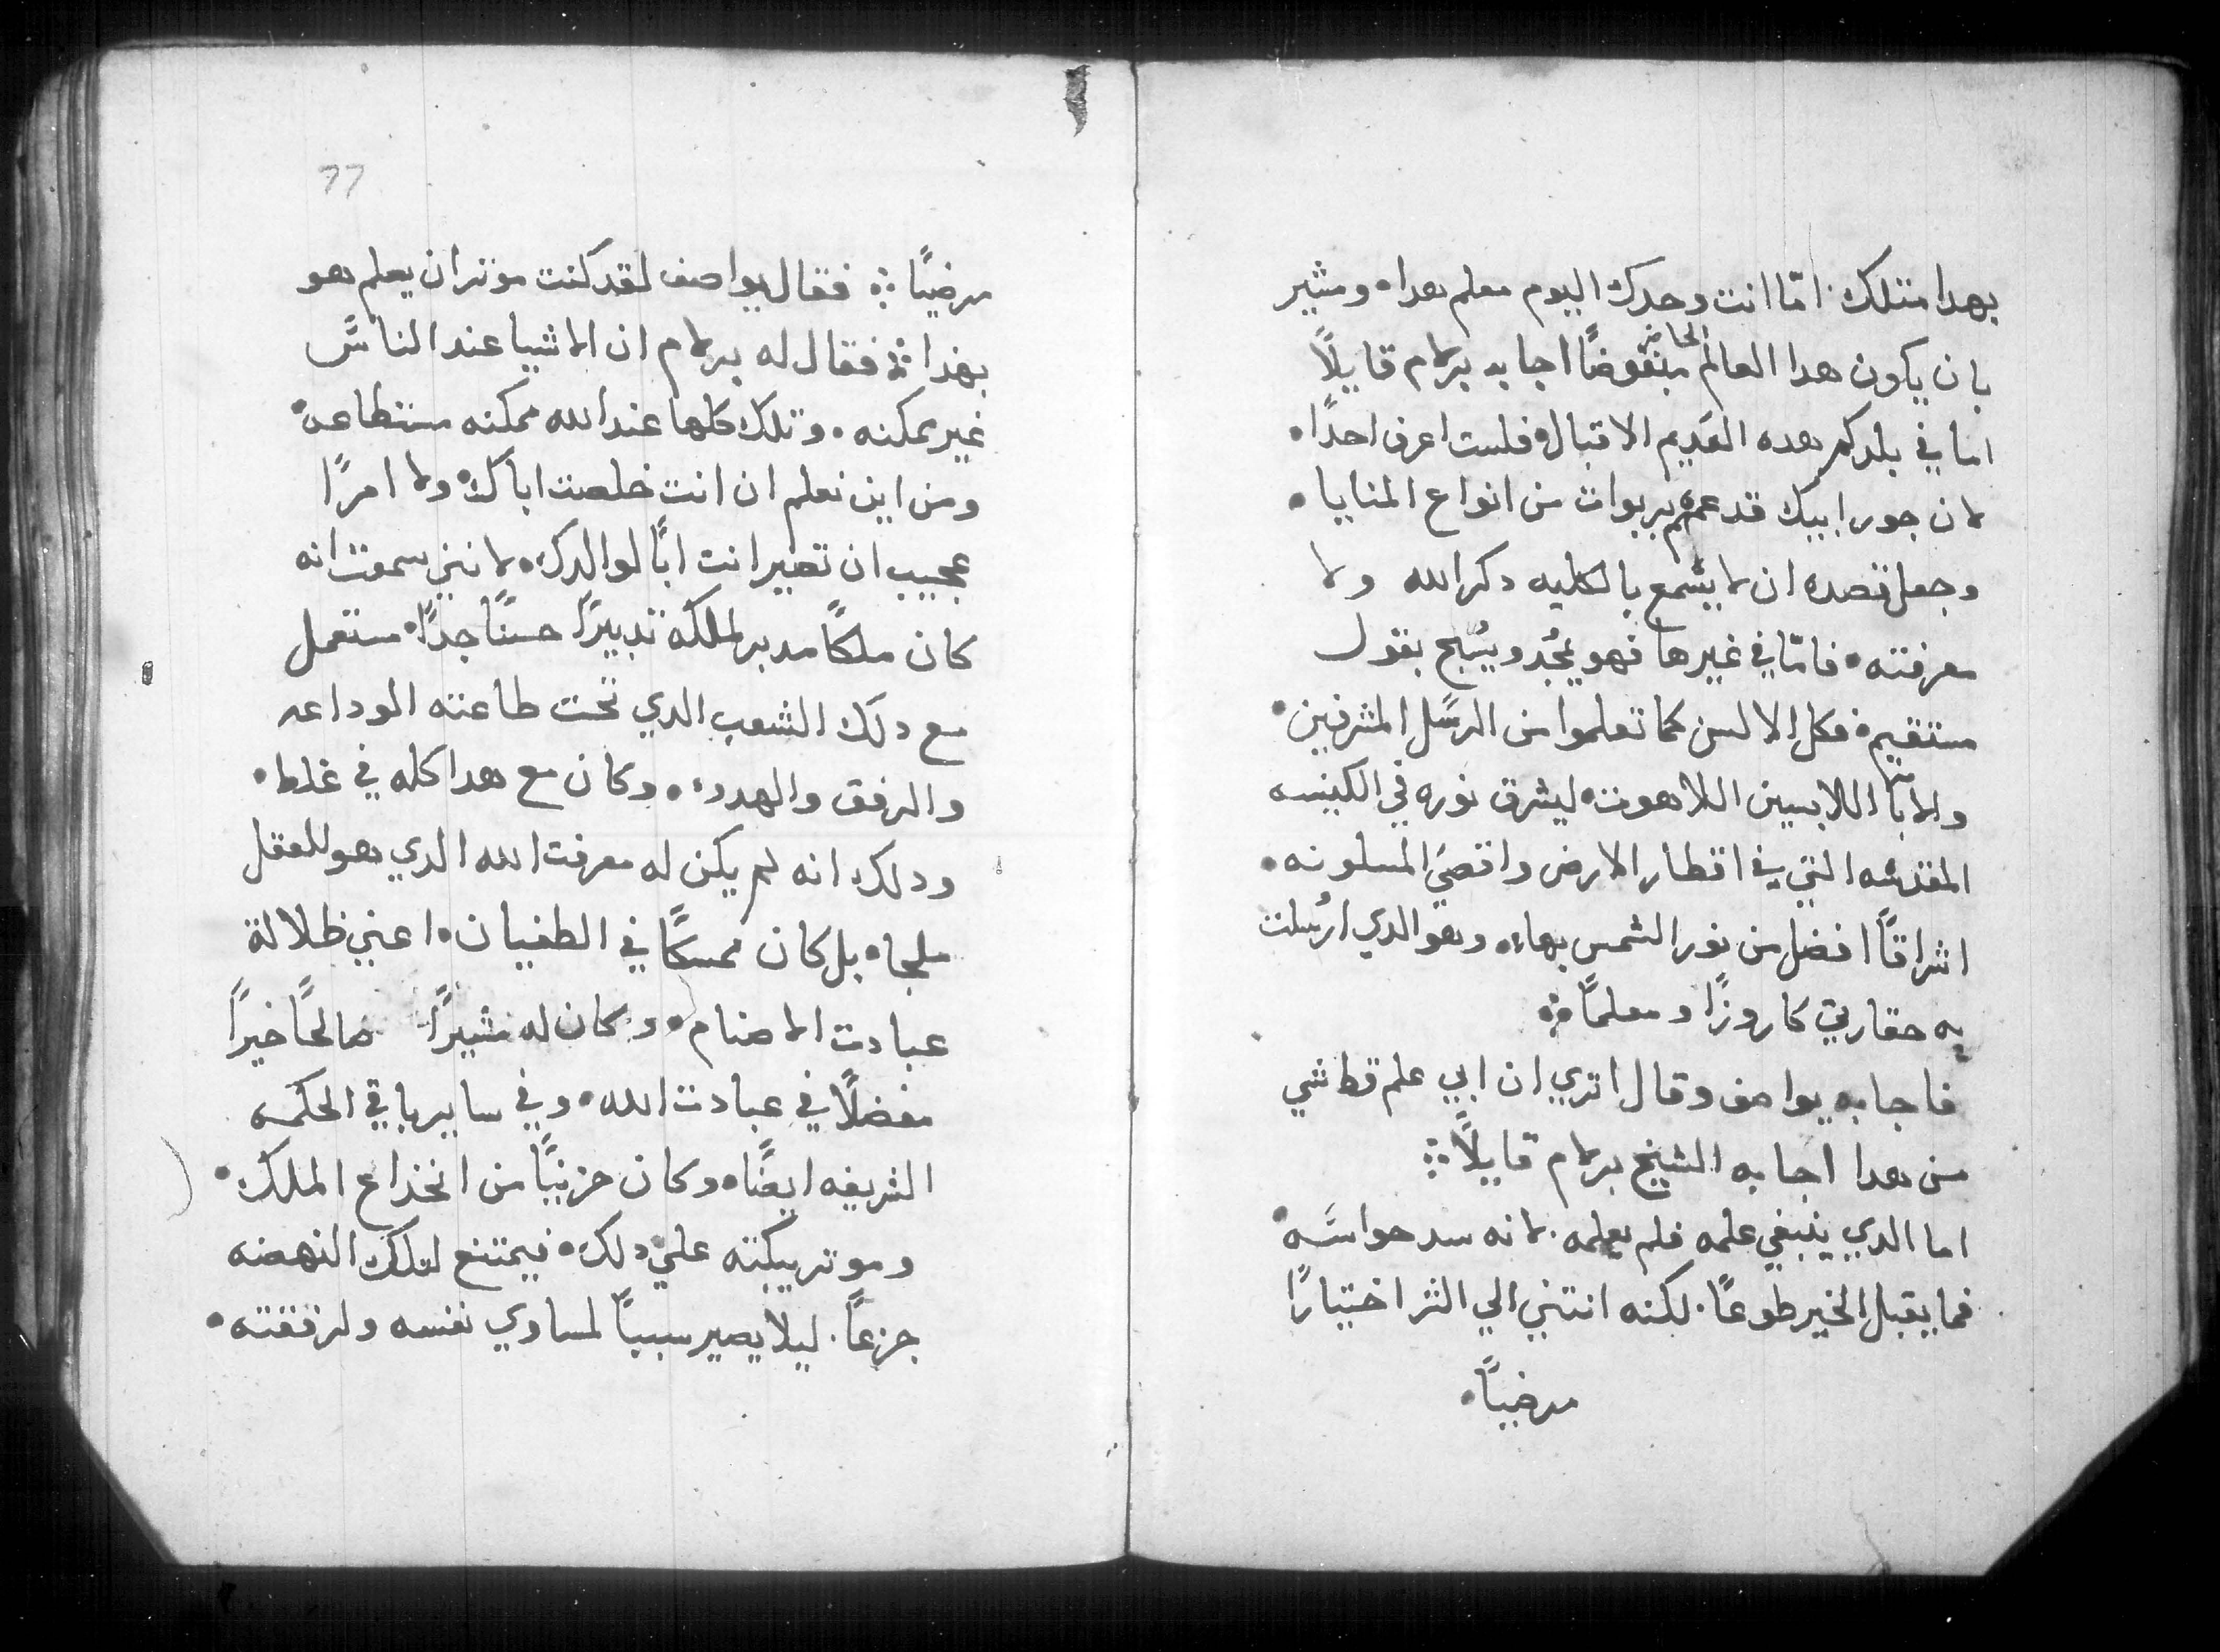 بهدا متلك. امّا انت وحدك اليوم معلم هدا. ومثير
بان يكون هدا العالم الحاضر منقوضًا اجابه برلام قايلاً
اما في بلدكم هده القديم الاقبال. فلست اعرف احدًا.
لان جور ابيك قد عمهم بربوات من انواع المنايا.
وجعل قصده ان لا يسمع بالكليه دكر الله ولا
معرفته. فامّا في غيرها فهو يمجُد ويسُبح بقول
مستقيم. فكل الالسن كما تعلموا من الرسَل المشرفين.
والابا اللابسين اللاهوت. ليشرق نوره في الكنيسه
المقدسه التي في اقطار الارض واقصَي المسلونه.
اشراقاً افضل من نور الشمس بهاء. وهو الدي ارُسلت
به حقارتي كاروزًا ومعلمًا ܀
فاجابه يواصف وقال اتري ان ابي علم قط شي
من هدا اجابه الشيخ برلام قايلاً ܀
اما الدي ينبغي علمه فلم يعلمه. لانه سد حواسَه.
فما يقبل الخير طوعًا. لكنه انتني الي الشر اختيارًا
مرضياً.
77
مرضيًا ܀ فقال يواصف لقد كنت موثر ان يعلم هو
بهدا ܀ فقال له برلام ان الاشيا عند الناسَ
غير ممكنه. وتلك كلها عند الله ممكنه مستطاعه.
ومن اين نعلم ان انت خلصت اباك. ولا امرًا
عجيب ان تصير انت ابًا لوالدك. لانني سمعت انه
كان ملكًا مدبر لملكه تدبيرًا حسنًا جدًا. مستعمل
مع دلك الشعب الدي تحت طاعته الوداعه
والرفق والهدوء. وكان مع هدا كله في غلط.
ودلك انه لم يكن له معرفت الله الدي هو للعقل
ملجا. بل كان ممسكًا في الطغيان. اعني ظلالة
عبادت الاصنام. وكان له مشيرًا صالحًا خيرًا
مفضلاً في عبادت الله. وفي ساير باقي الحكمه
الشريفه ايضًا. وكان حزينًا من انخداع الملك.
وموثر يبكته علي دلك. فيمتنع لتلك النهضه
جزعًا. ليلا يصير سبباً لمساوي نفسه ولرفقته.